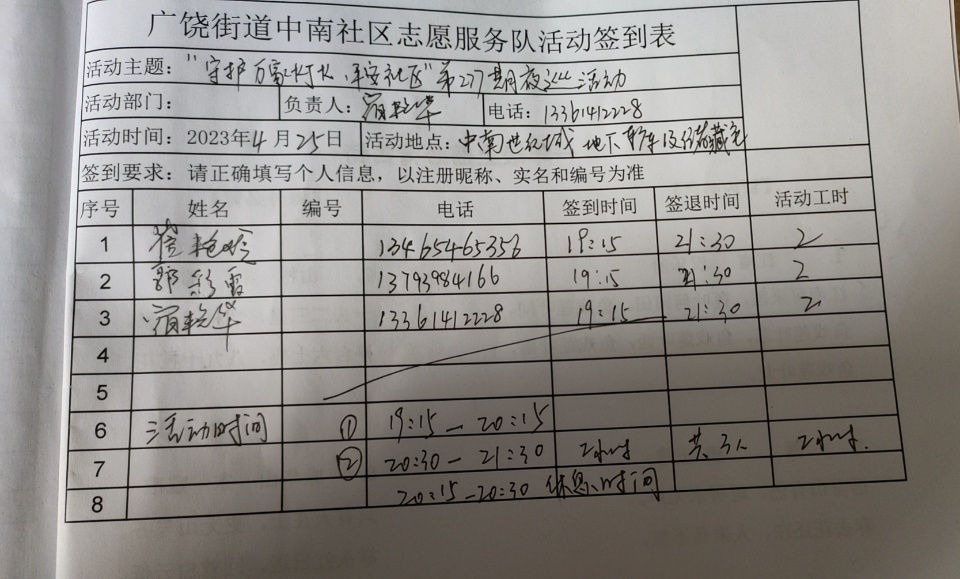 广饶街道中南社区志愿服务队活动签到表
活动主题："守护万家灯火，平安社区"第277期夜巡活动
活动部门： 负责人：宿艳华 电话：13361412228
活动时间：2023年4月25日 活动地点：中南世纪城 地下车及储藏室
签到要求：请正确填写个人信息，以注册昵称、实名和编号为准
序号 姓名 编号 电话 签到时间 签退时间 活动工时
1 13465465356 19:15 21:30 2
2 郭彩霞 13793984166 19:15 21:30 2
3 宿艳华 13361412228 19:15 21:30 2
4
5
6 活动时间 ① 19:15－20:15
7 ② 20:30－21:30 2小时 共3人 2小时.
8 20:15－20:30 休息时间